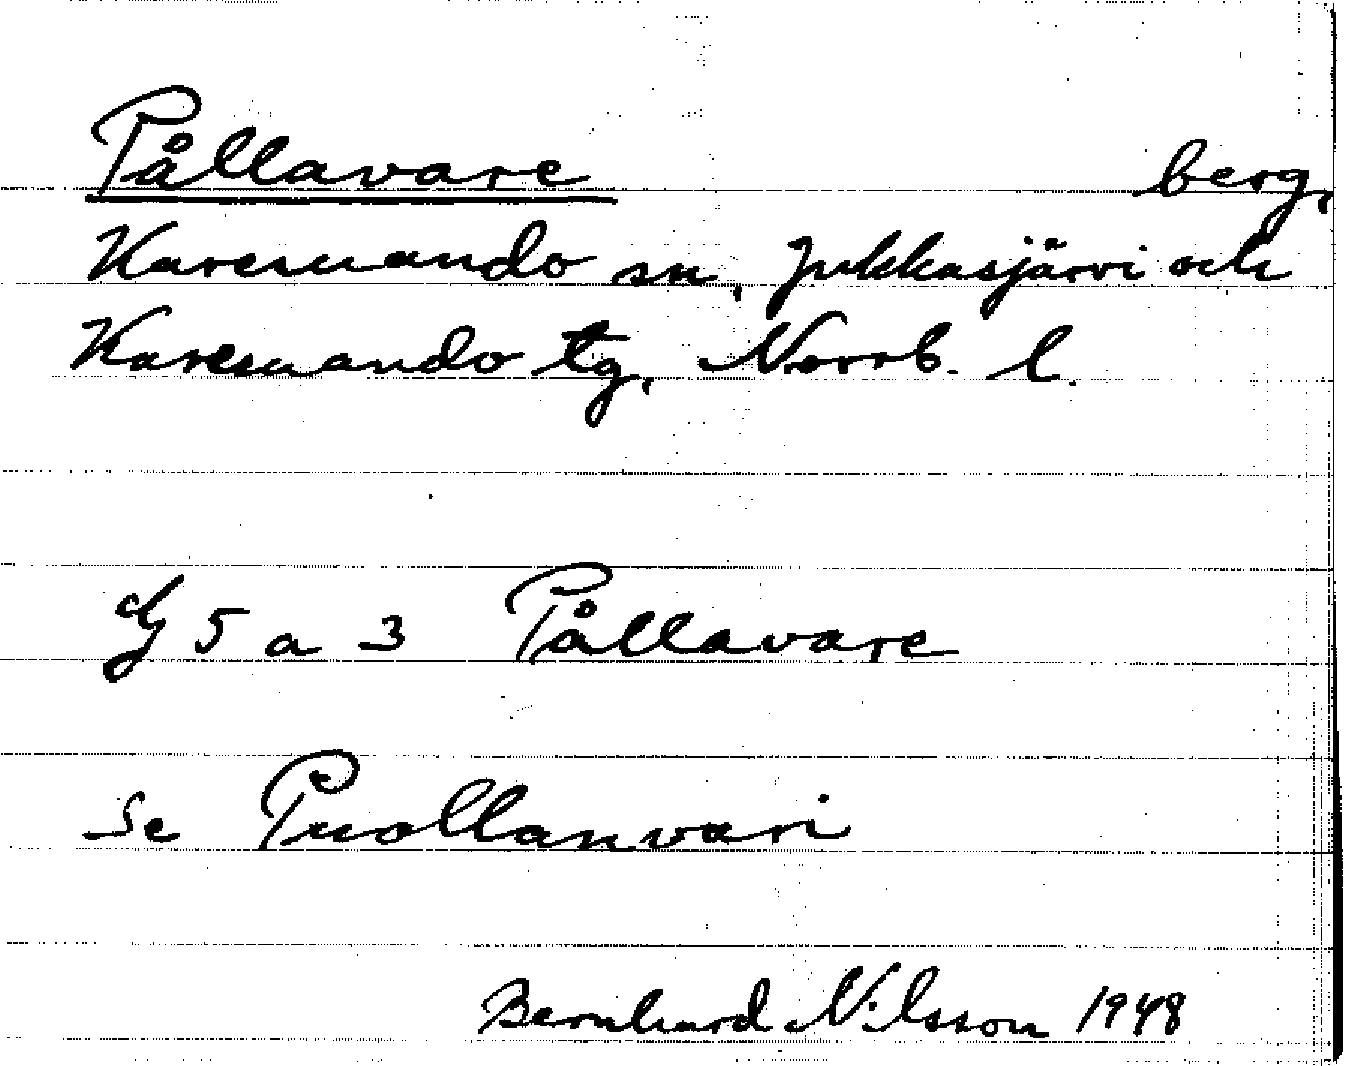 Pållavare berg,
Karesuando sn, Jukkasjärvi och
Karesuando tg, Norrb. l.
5 a 3 Pållavare
Se Puollanvari
Bernhard Nilsson 1948